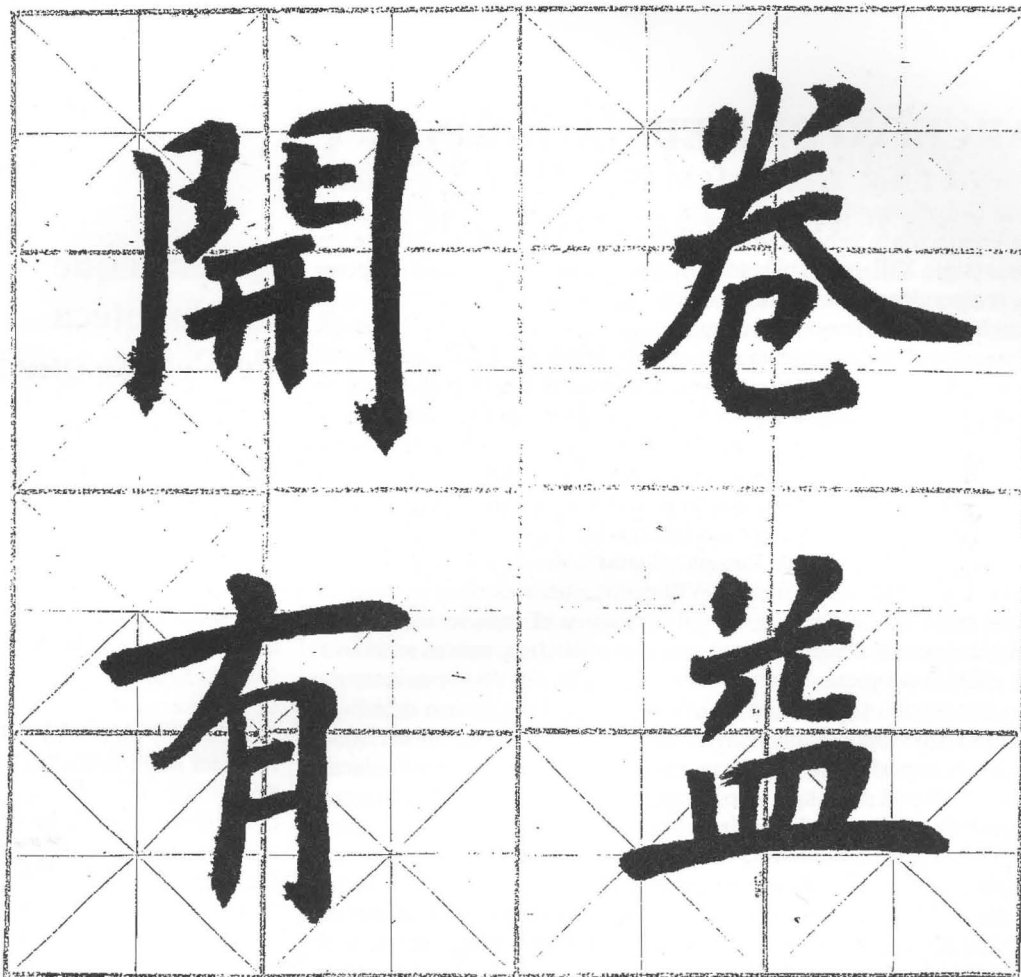 開卷
有益